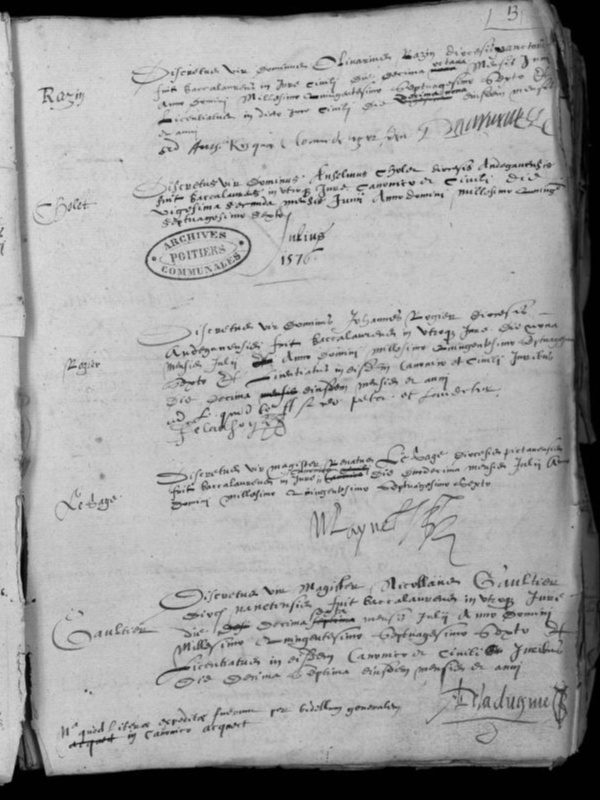 13
Razin
Discretus vir dominus Olivarius Razin diocesis
fuit baccalaureus in Jure Civili die decima octava mensis Junii
Anno domini Millesimo quingentesimo septuagesimo sexto Et
Licentiatus in dicto Jure Civili die eiusdem mensis
et anni
Cholet
Discretus vir dominus Anselmus Cholet diocesis Andegavensis
fuit baccalaureus in utroque Jure Canonico et Civili die
vigesima secunda mensis Junii Anno domini millesimo quinge
septuagesimo sexto
Julius
1576
ARCHIVES
POITIERS
COMMUNALES
Regier
Discretus vir dominus Johannes Regier diocesis
Andegavensis fuit baccalaureus in utroque Jure die
mensis Julii Anno domini millesimo quingentesimo septuagesimo
sexto Et Licentiatus in eisdem Canonico et Civili Juribus
die decima mensis eiusdem mensis et anni
Le Sage
Discretus vir magister Renatus Le Sage diocesis pictavensis
fuit baccalaureus in Jure die duodecima mensis Julii Anno
domini millesimo quingentesimo septuagesimo sexto
Gaultier
Discretus vir Magister Nicollaus Gaultier
dioc nanetensis fuit baccalaureus in utroque Jure
die decima mensis Julii Anno domini
Millesimo quingentesimo septuagesimo sexto Et
Licentiatus in eisdem Canonico et Civili Juribus
die decima septima eiusdem mensis et anni
Na quod literae expeditae fuerunt per bidellum generalem
in Canonico